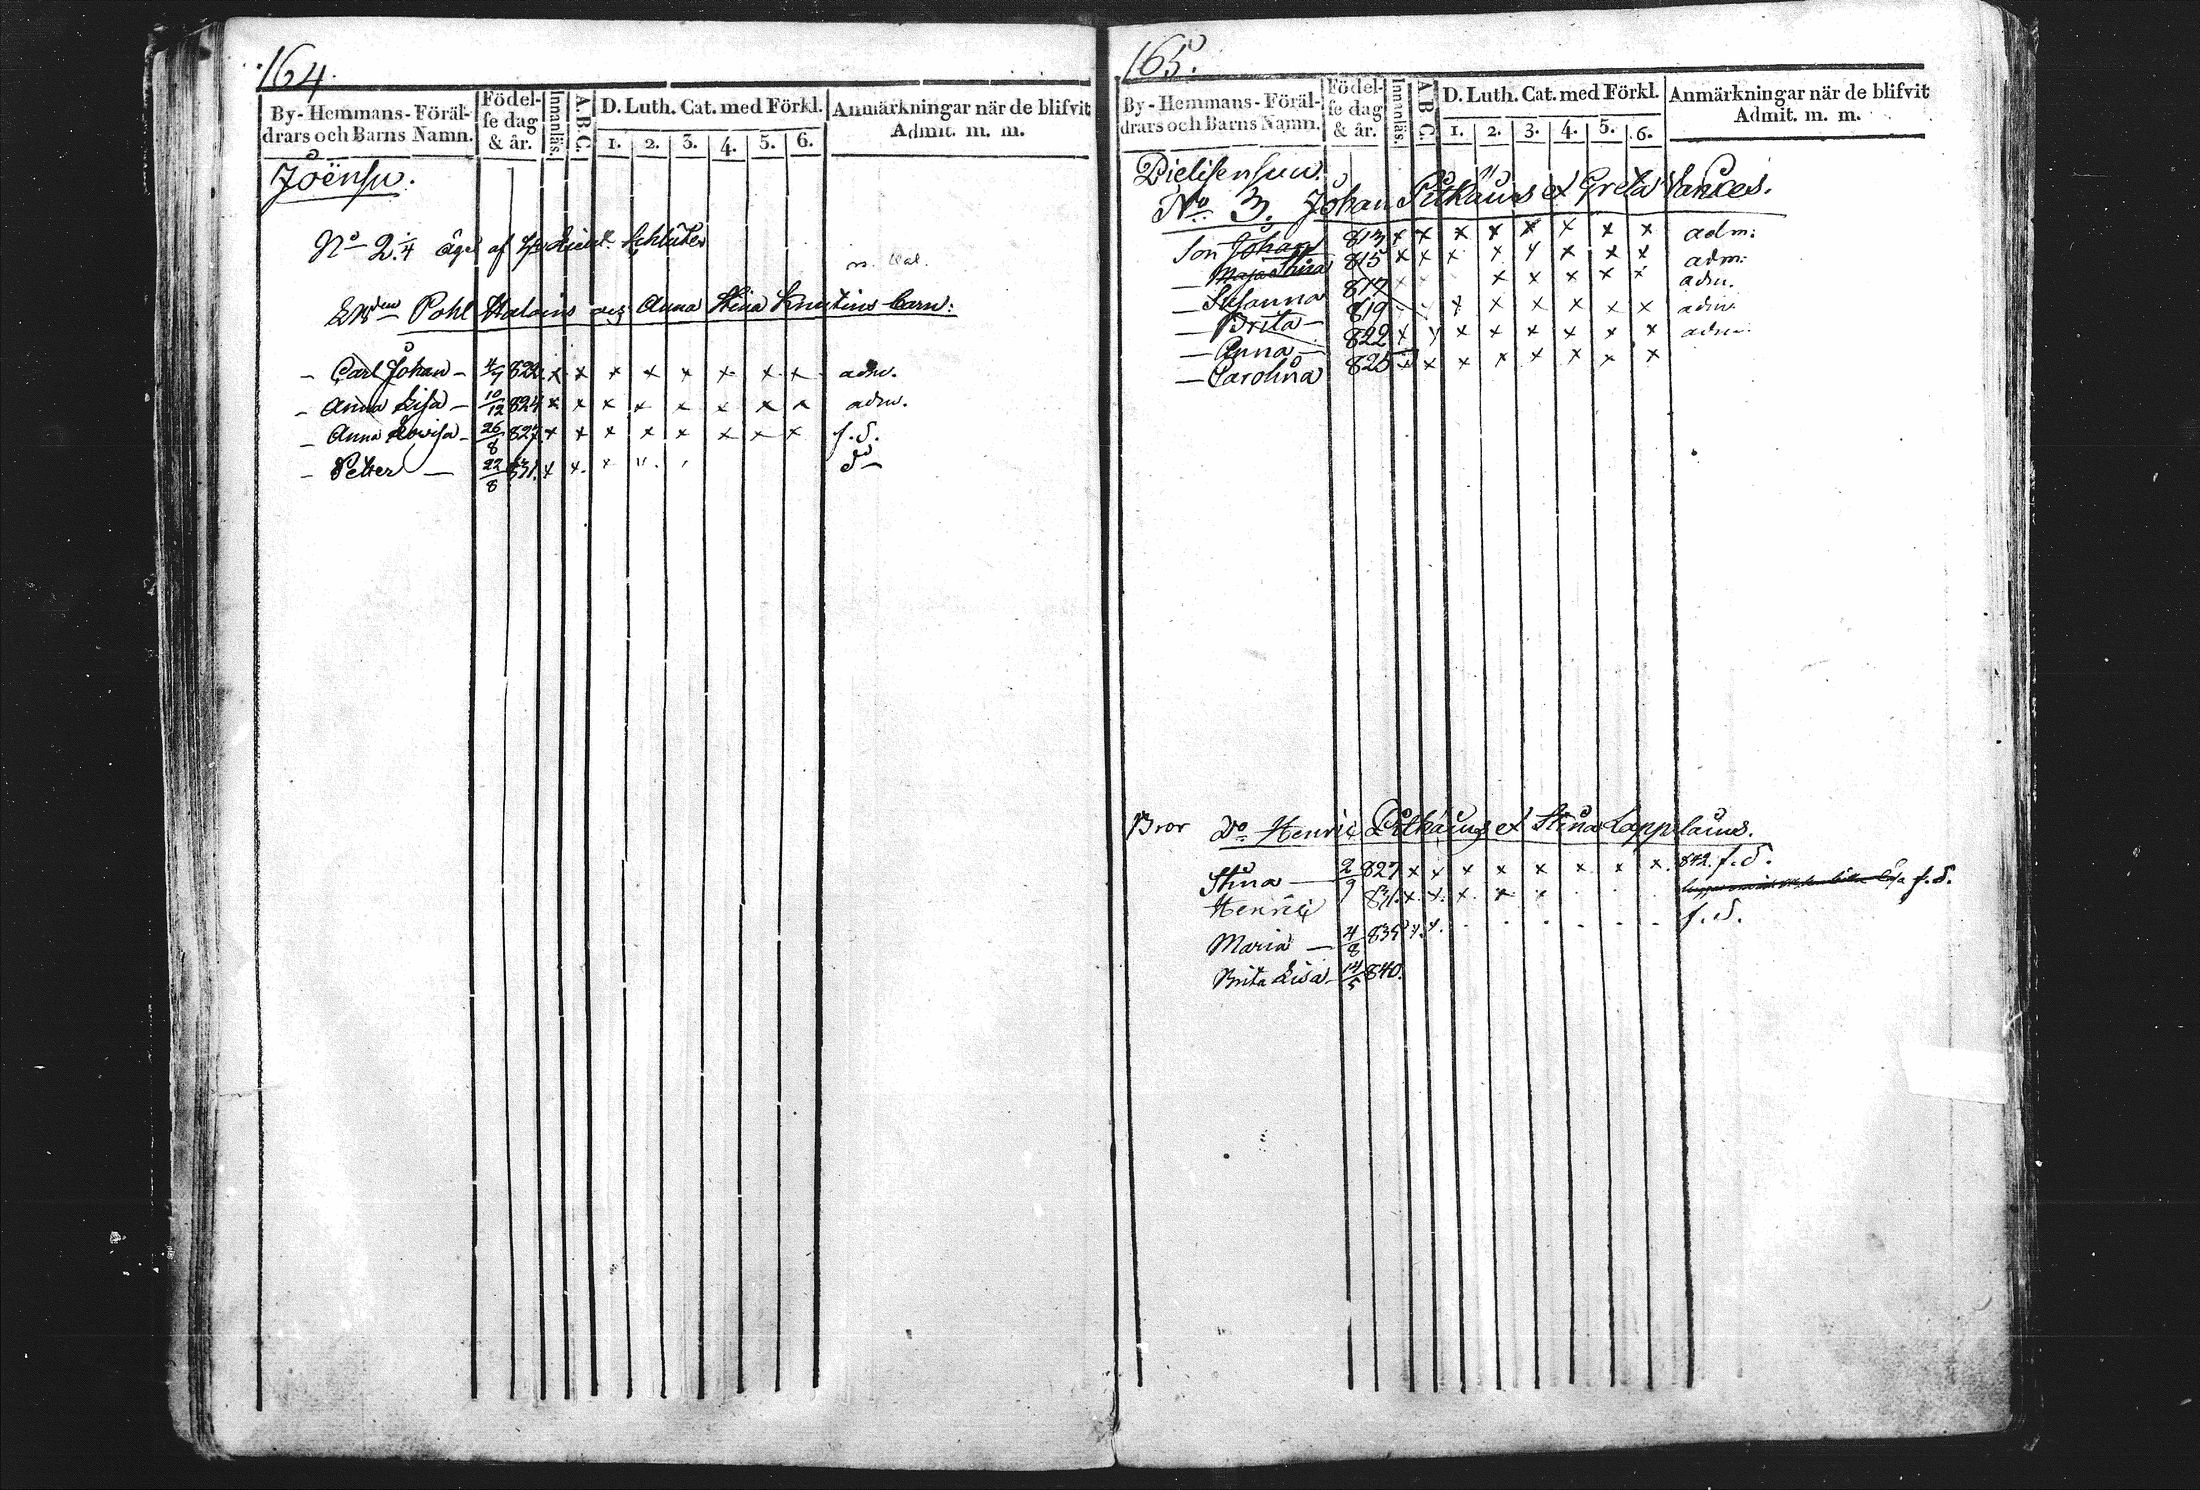 164.
By-Hemmans-Föräl-
drars och Barns Namn.
Födel-
se dag
& år.
Innanläs.
A.B.C.
D. Luth. Cat. med Förkl.
1. 2. 3. 4. 5. 6.
Anmärkningar när de blifvit
Admit. m. m.
Joënsu.
No 2.¼ äges af Schlüter
Pohl Anna Stina barn:
- Carl Johan - 4/7 822 x x x x x x x x adm.
- Anna Lisa - 10/12 824 x x x x x x x x adm.
- Anna Lovisa - 26/8 827 x x x x x x x x f.d.
- Petter - 22/8 831. x x. x do
165.
By-Hemmans-Föräl-
drars och Barns Namn.
Födel-
se dag
& år.
Innanläs.
A B C.
D. Luth. Cat. med Förkl.
1. 2. 3. 4. 5. 6.
Anmärkningar när de blifvit
Admit. m. m.
Pielisensuu.
No 3. Johan Pitkäins et Greta
Son Johan 813 x x x x x x x x adm:
- Maja Stina 815 x x x x x x x x adm:
- Susanna 817 x x x x x adm.
- Brita - 819 x x x x x x adm.
- Anna - 822 x x x x x x x x adm.
- Carolina 825 x x x x x x x x
Bror Do Henric Pitkäins et Stina Lapplains.
Stina - 2/9 827 x x x x x x x x. 842. f.d.
Henric 831. x. x. x. x x f.d.
Maria - 4/8 835 x. x. f.d.
Brita Lisa - 14/5 840.